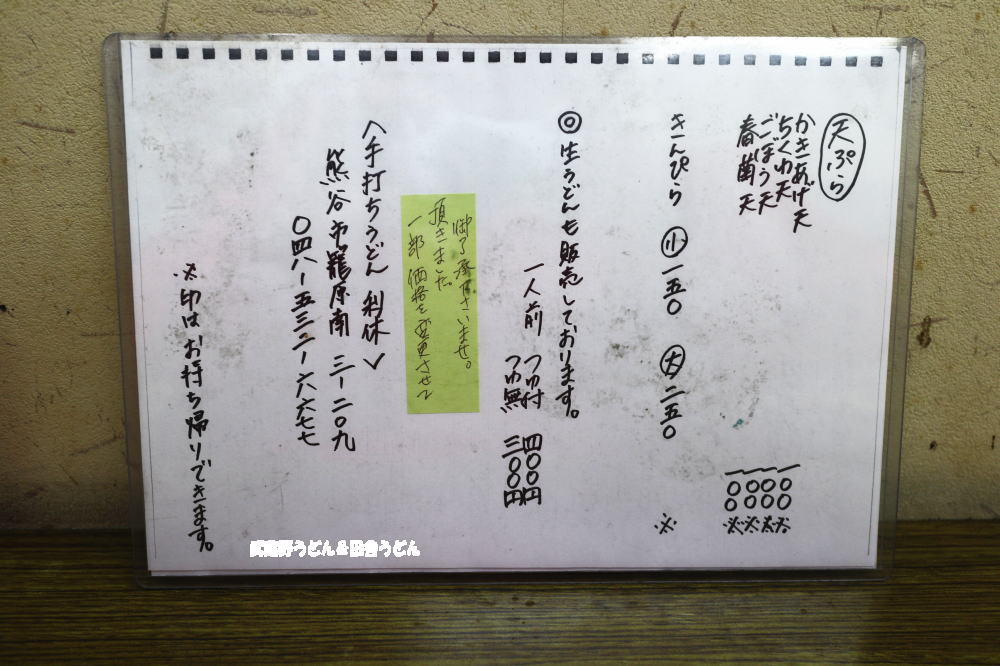 天ぷら
かきあげ天 一〇〇 ※
ちくわ天 一〇〇 ※
ごぼう天 一〇〇 ※
春菊天 一〇〇 ※
きんぴら 小 一五〇 大 二五〇 ※
◎生うどんも販売しております。
一人前 つゆ付 四〇〇円
つゆ無 三〇〇円
一部価格を変更させて
頂きました。
御了承下さいませ。
〈手打ちうどん 利休〉
熊谷市籠原南 三ー二〇九
〇四八ー五三二ー六六七七
※印はお持ち帰りできます。
武蔵野うどん＆田舎うどん